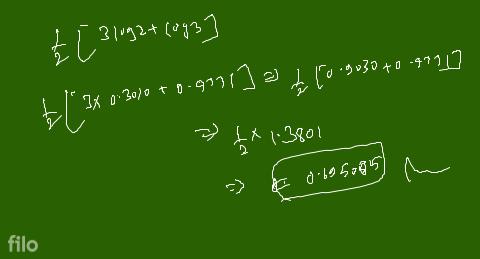 1/2 [3log2 + log3]
1/2 [3× 0.3010 + 0.4771] ⇒ 1/2 [0.9030 + 0.4771]
⇒ 1/2 × 1.3801
⇒ 0.695085
filo